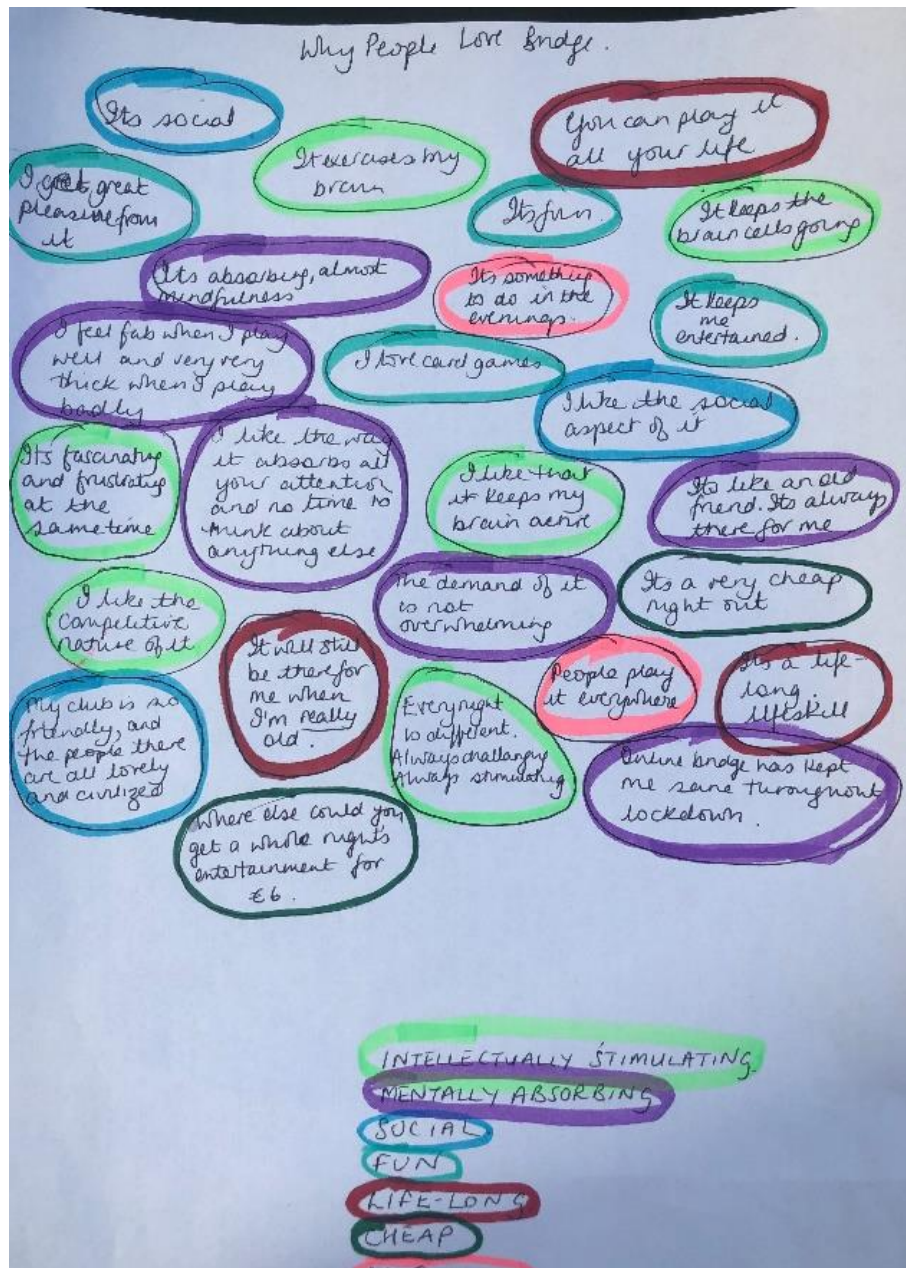 Why People Love Bridge.
Its social
It exercises my
brain
You can play it
all your life
I get great
pleasure from
it
Its fun.
It keeps the
brain cells going
Its absorbing, almost
mindfulness
Its something
to do in the
evenings.
It keeps
me
entertained.
I feel fab when I play
well and very very
thick when I play
badly
I love card games
I like the social
aspect of it
It's fascinating
and frustrating
at the
same time
I like the way
it absorbs all
your attention
and no time to
think about
anything else
I like that
it keeps my
brain active
Its like an old
friend. Its always
there for me
I like the
competitive
nature of it
The demand of it
is not
overwhelming
Its a very cheap
night out
It will still
be there for
me when
I'm really
old.
People play
it everywhere
Its a life-
long.
lifeskill
My club is so
friendly, and
the people there
are all lovely
and civilized
Every night
is different.
Always challanging
Always stimulating
Online bridge has kept
me sane throughout
lockdown.
Where else could you
get a whole nights
entertainment for
€6.
INTELLECTUALLY STIMULATING
MENTALLY ABSORBING
SOCIAL
FUN
LIFE-LONG
CHEAP